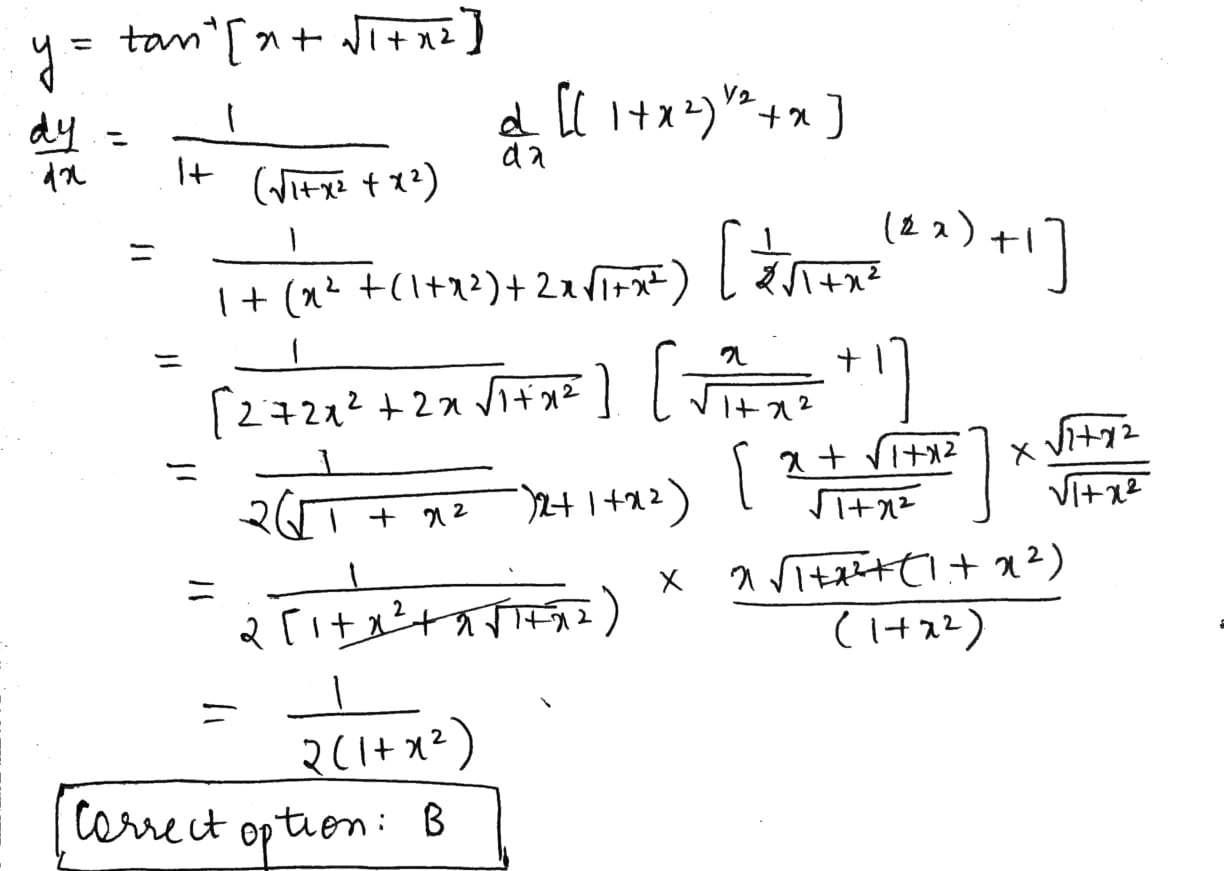 y = tan⁻¹[x + √1+x²]
dy/dx = 1/(1+ (√1+x² + x²)) d/dx [(1+x²)^1/2 + x]
= 1/(1 + (x² + (1+x²) + 2x√1+x²)) [1/(2√1+x²) (2x) + 1]
= 1/[2+2x² + 2x√1+x²] [x/√1+x² + 1]
= 1/(2(√1+x²)x + 1+x²) [(x + √1+x²)/√1+x²] × √1+x²/√1+x²
= 1/(2[1+x²+x√1+x²)) × (x√1+x²+(1+x²))/(1+x²)
= 1/(2(1+x²))
Correct option: B